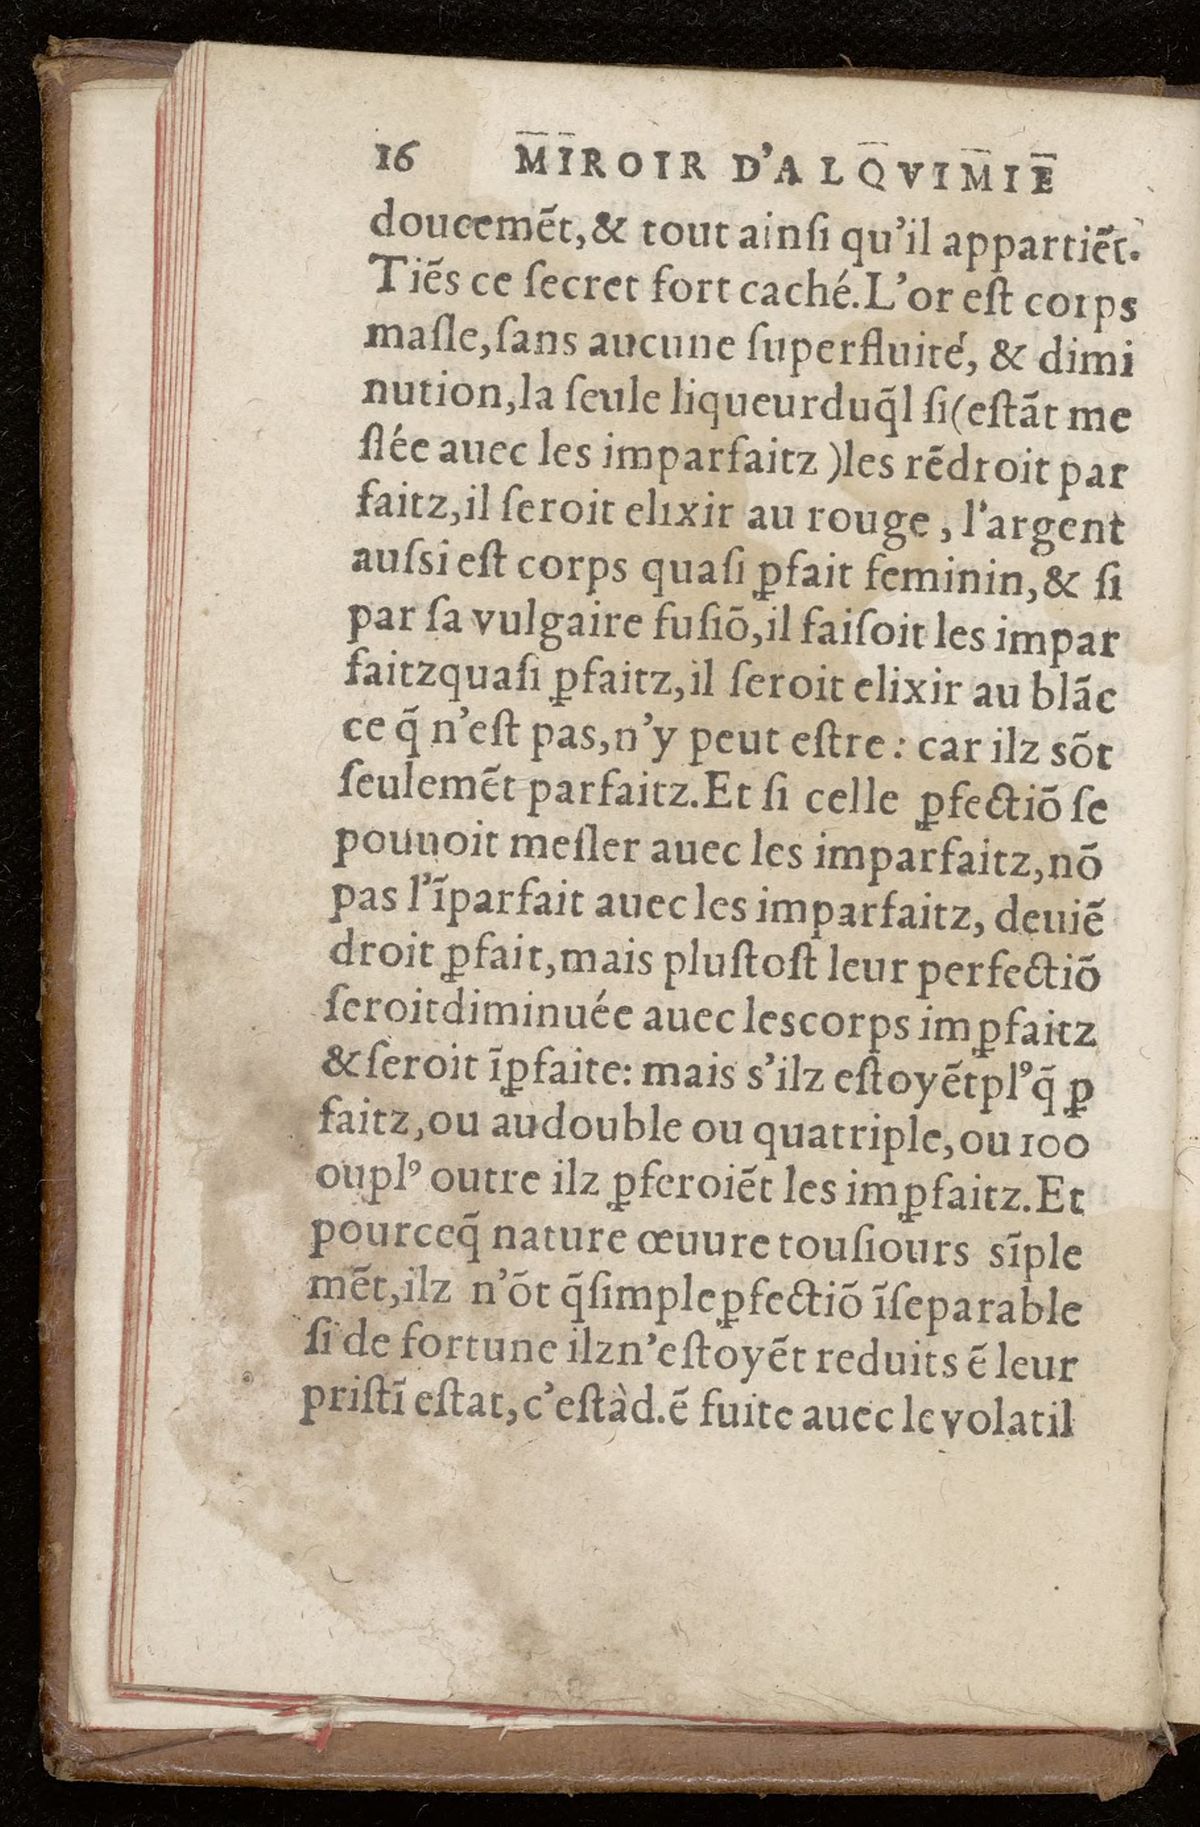 16 MIROIR D'ALQVIMIE
doucemẽt,& tout ainſi qu'il appartiẽt.
Tiẽs ce ſecret fort caché.L'or eſt corps
maſle,ſans aucune ſuperfluité, & dimi
nution,la ſeule liqueurduq̃l ſi(eſtãt me
ſlée auec les imparfaitz )les rẽdroit par
faitz,il ſeroit elixir au rouge , l'argent
auſsi eſt corps quaſi ꝑfait feminin,& ſi
par ſa vulgaire fuſiõ,il faiſoit les impar
faitzquaſi ꝑfaitz,il ſeroit elixir au blãc
ce q̃ n'eſt pas,n'y peut eſtre : car ilz sõt
ſeulemẽt parfaitz.Et ſi celle ꝑfectiõ ſe
pouuoit meſler auec les imparfaitz,nõ
pas l'ĩparfait auec les imparfaitz, deuiẽ
droit ꝑfait,mais pluſtoſt leur perfectiõ
ſeroitdiminuée auec lescorps imꝑfaitz
&ſeroit ĩꝑfaite: mais s'ilz eſtoyẽtplꝰq̃ ꝑ
faitz,ou audouble ou quatriple,ou 100
ouplꝰ outre ilz ꝑferoiẽt les imꝑfaitz.Et
pourceq̃ nature œuure touſiours sĩple
mẽt,ilz n'õt q̃ſimpleꝑfectiõ ĩſeparable
ſi de fortune ilzn'eſtoyẽt reduits ẽ leur
priſtĩ eſtat,c'eſtàd.ẽ fuite auec levolatil